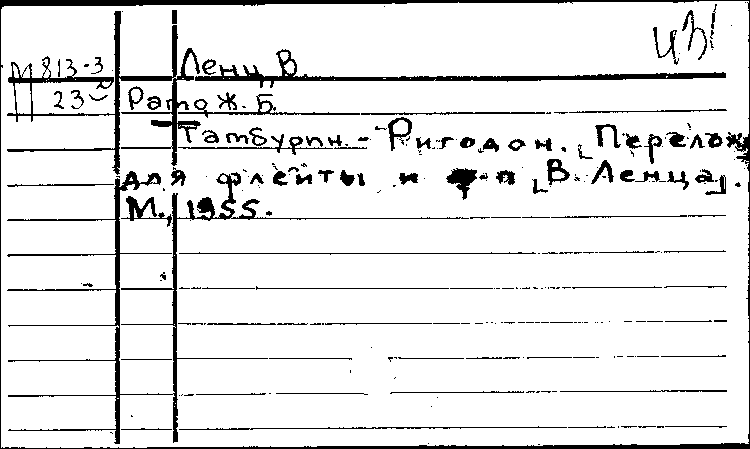 ЦЗ1
М 813-3 Ленц, В.
23 Рамо Ж. Б.
Тамбурин. - Ригодон. [Перелож
для флейты и ф-п [В. Ленца].
М., 1955.